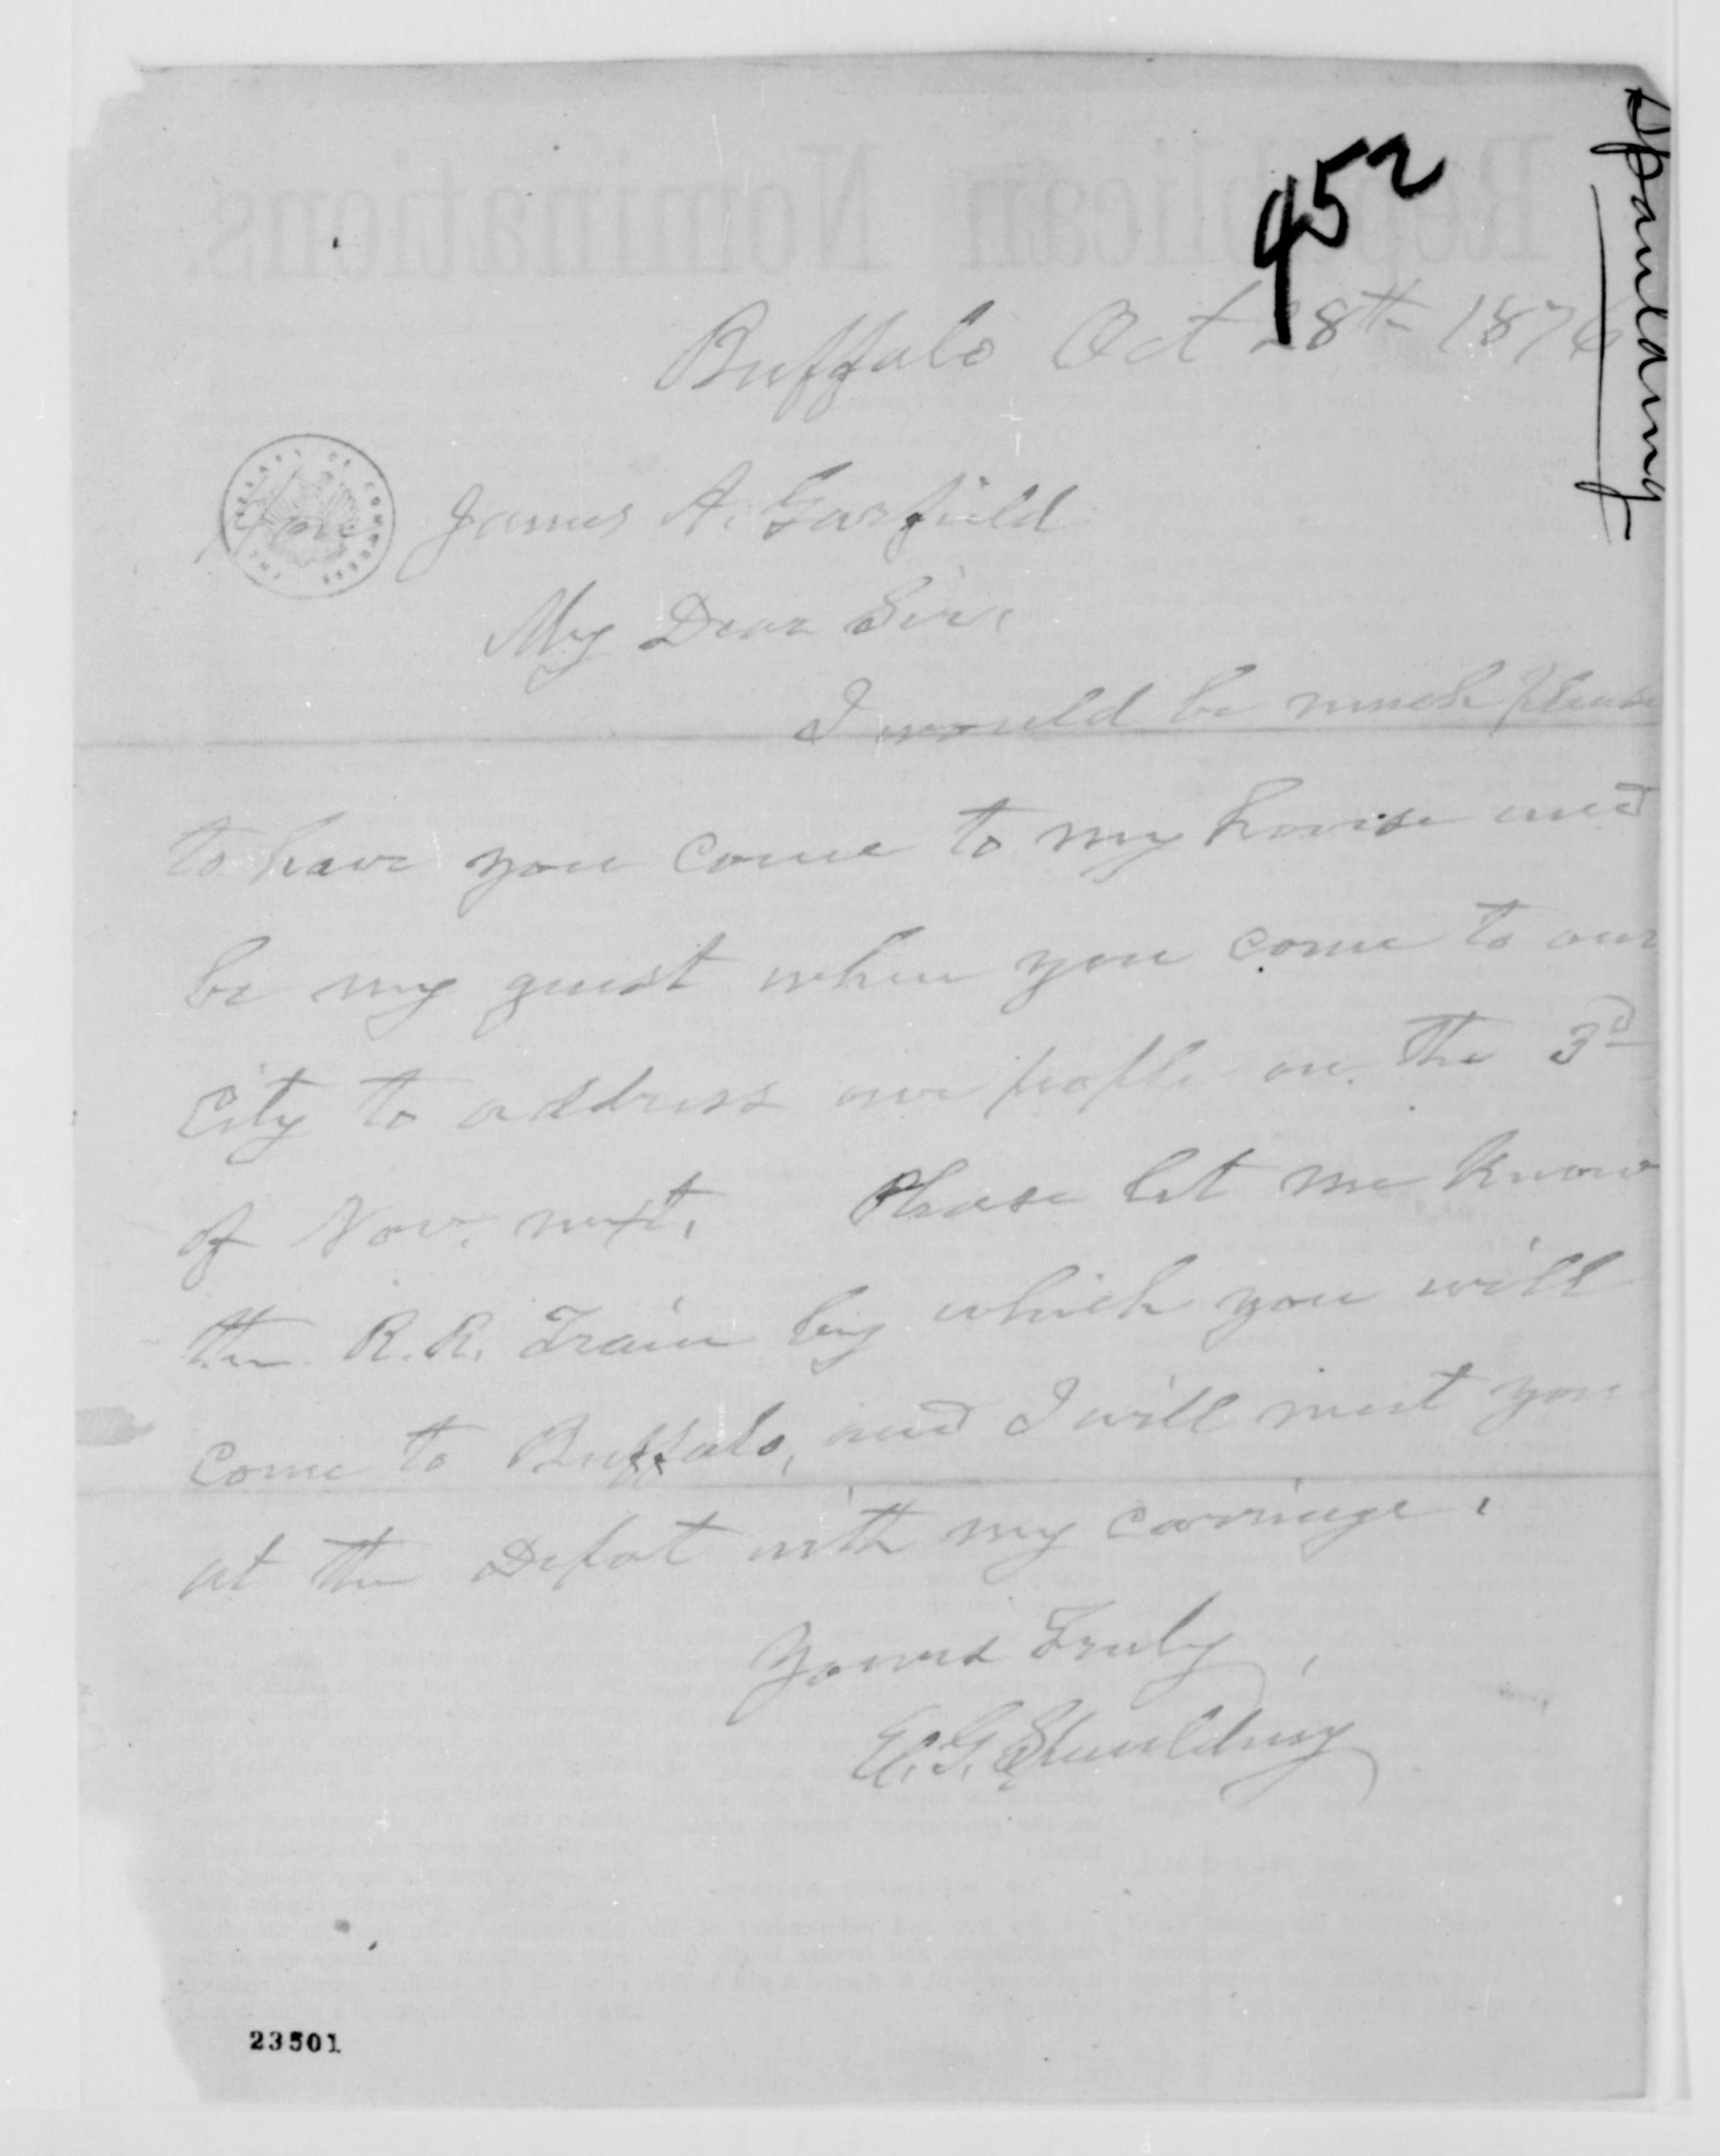 Republican Nominations.
452
Spaulding
Buffalo Oct 28th 1876
Hon James A. Garfield
THE LIBRARY OF CONGRESS
My Dear Sir,
I would be much please
to have you come to my house and
be my guest when you come to our
City to address our people on the 3d
of Nov. next. Please let me know
the R.R. Train by which you will
come to Buffalo, and I will meet you
at the Depot with my carriage.
Yours Truly,
E. G. Spaulding
23501